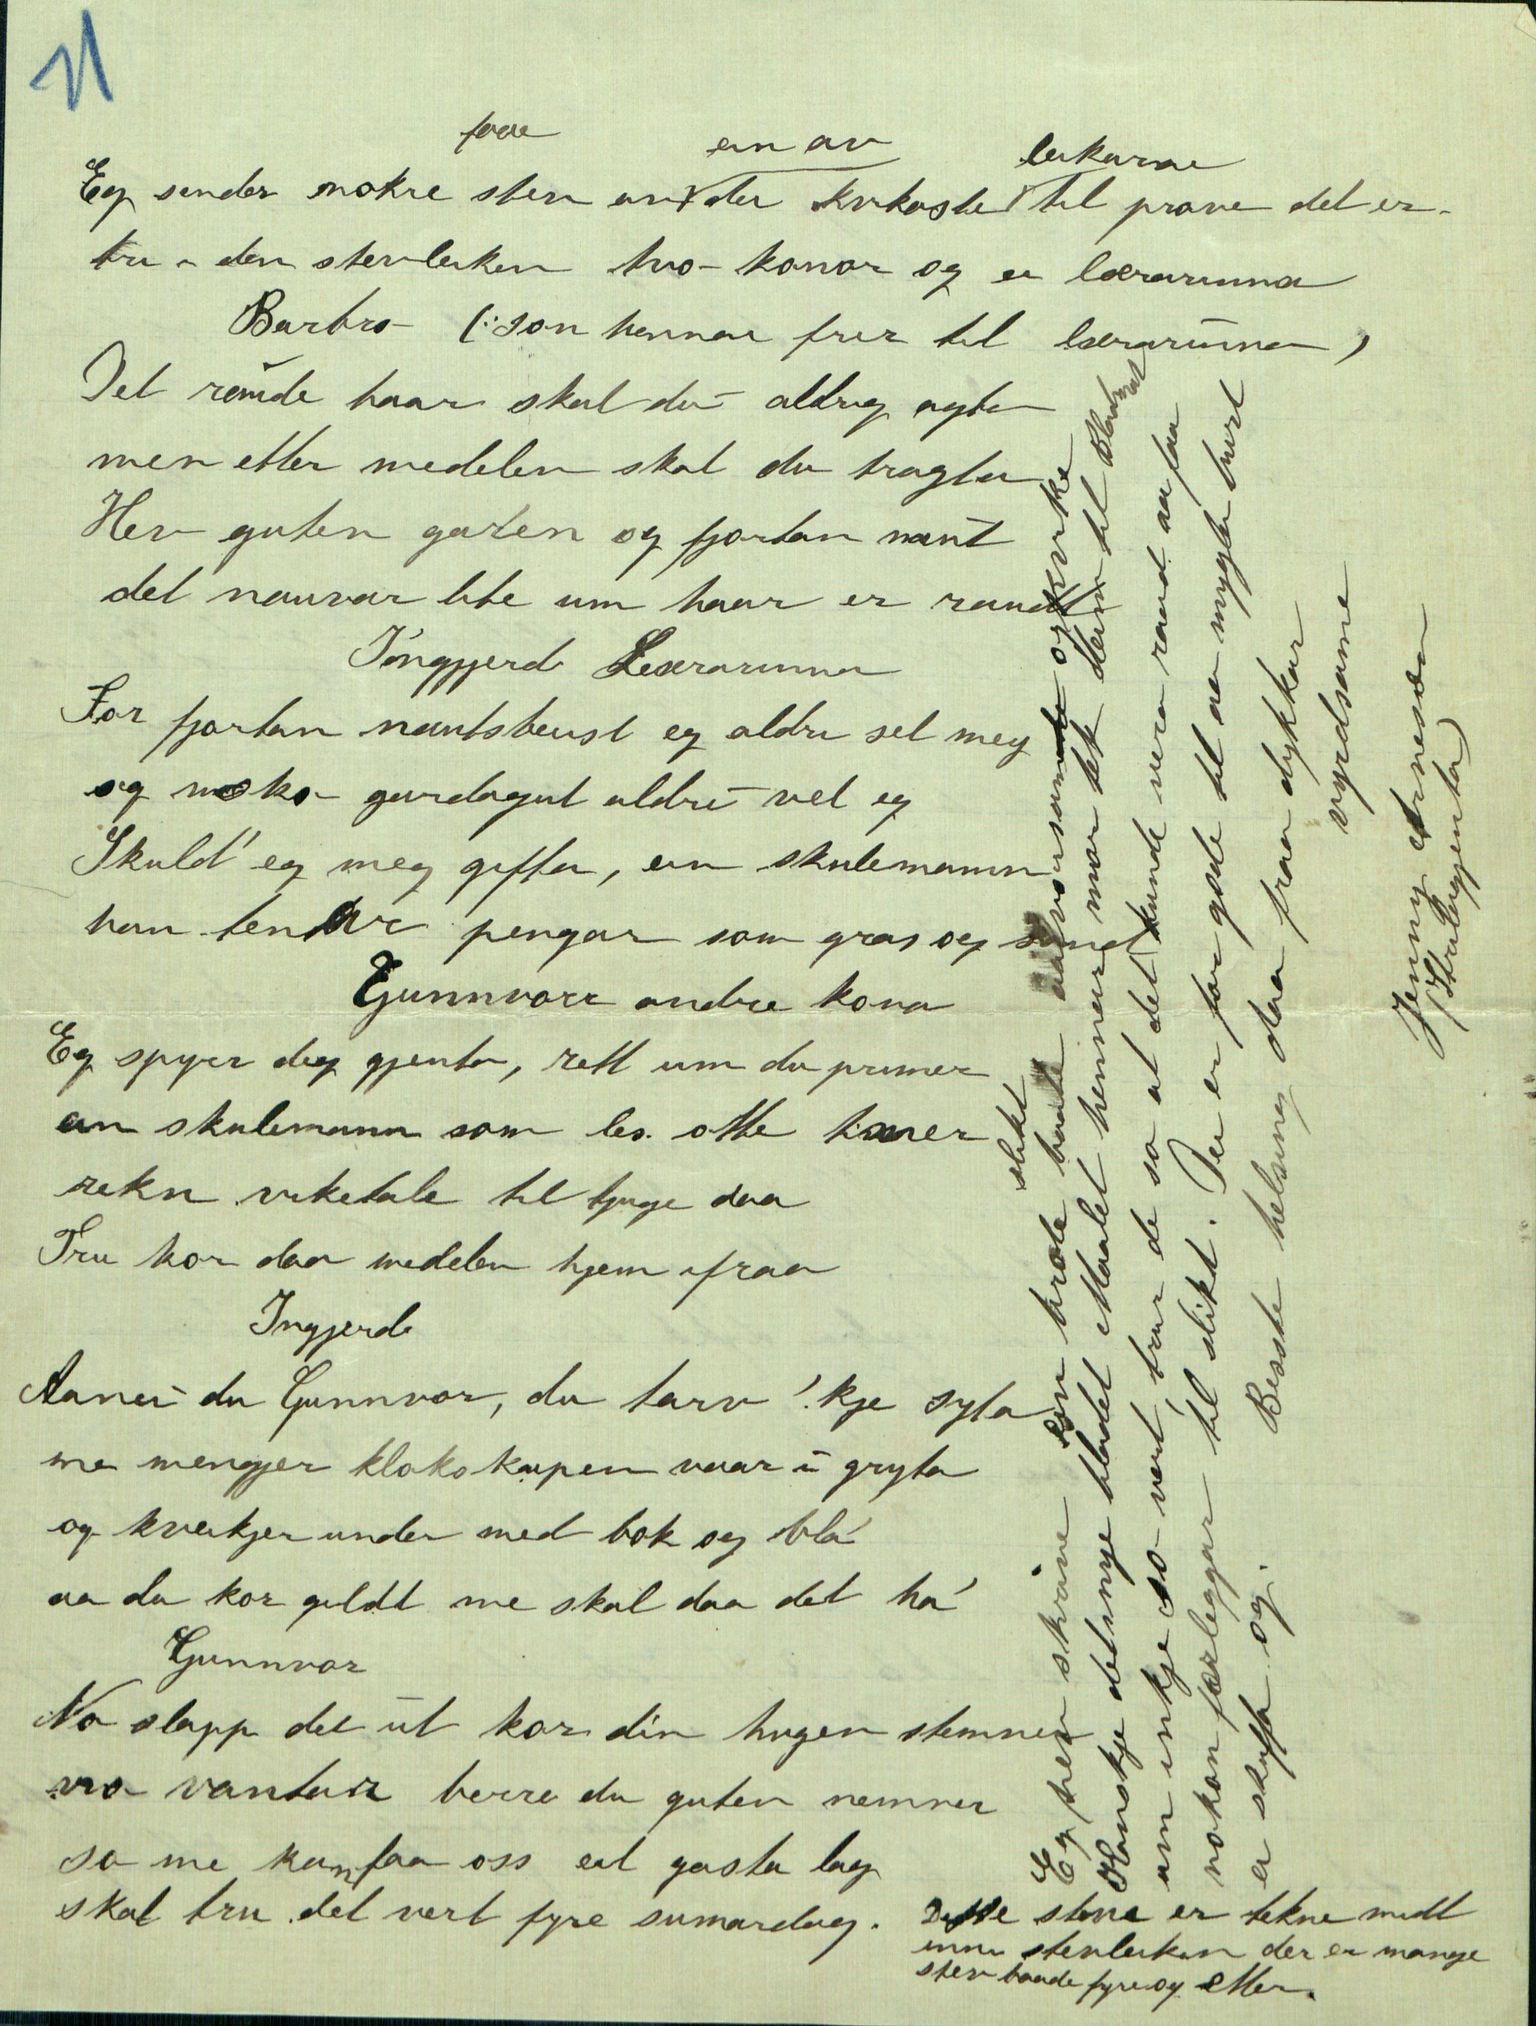 21
faae ein av leikarne
Eg sender nokre stev av dei kvikaste til prøve det er
tri i den stevleiken two konor og ei lærarinna
Barbro (: son hennar frir til lærarinna)
Det raude haar skal du aldrig agta
men etter medelen skal du tragta
Hev guten garen og fjortan naut
det nauvar lite um haar er raudt
Ingjerd Lærarinna
For fjortan nautsbeist eg aldri sel meg
og noko gardagut aldri vel eg
Skuld' eg meg gifta, ein skulemann
han tenar pengar som gras og sand
Gunnvor andre kona
Eg spyr deg gjenta, rett um du primer
ein skulemann som les otte timer
rekn viketale til tjuge daa
Tru kor daa medelen hjem ifraa
Ingjerd
Aanei du Gunnvor, du tarv 'kje syta
me mengjer klokskapen vaar i gryta
og kveikjer under med bok og bla'
aa du kor gildt me skal daa det ha'
Gunnvor
No slapp det ut kor din hugen stemner
no vantar berre du guten nemner
so me kann faa oss eit gasta lag
skal tru det vert fyre sumardag.
Desse steve er tekne midt
inni stevleiken der er mange
stev baade fyre og etter.
Eg hev skrive ein hrote baate slikt aalvorsamt og kvike
Kanskje det nye bladet Maalet hennar mor tek deim til Bladmat
um inkje so vert trur de so at det kunde vera raad aa faa
nokon forleggar til slikt. Dei er for gode til aa mygla burt
ei skufta og. Beste helsing daa fraa dykkar
vyrdsame
Jenny Arnesen
(Strilergjenta)